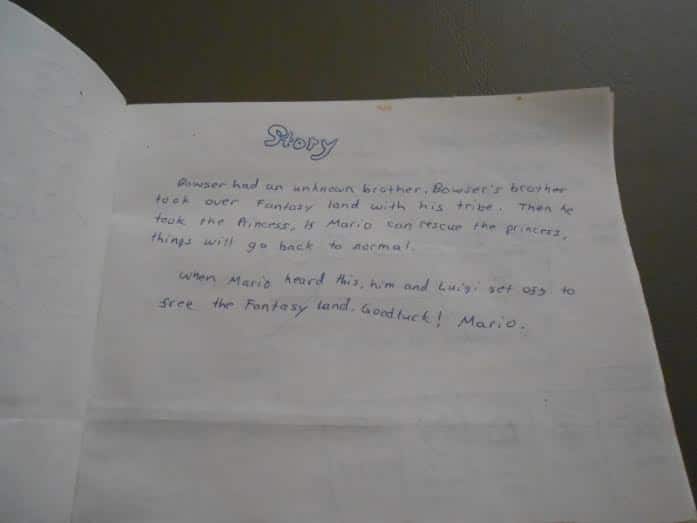 Story
Bowser had an unknown brother. Bowser's brother
took over Fantasy land with his tribe. Then he
took the Princess, If Mario can rescue the princess,
things will go back to normal.
When Mario heard this, him and Luigi set off to
free the Fantasy land. Goodluck! Mario.